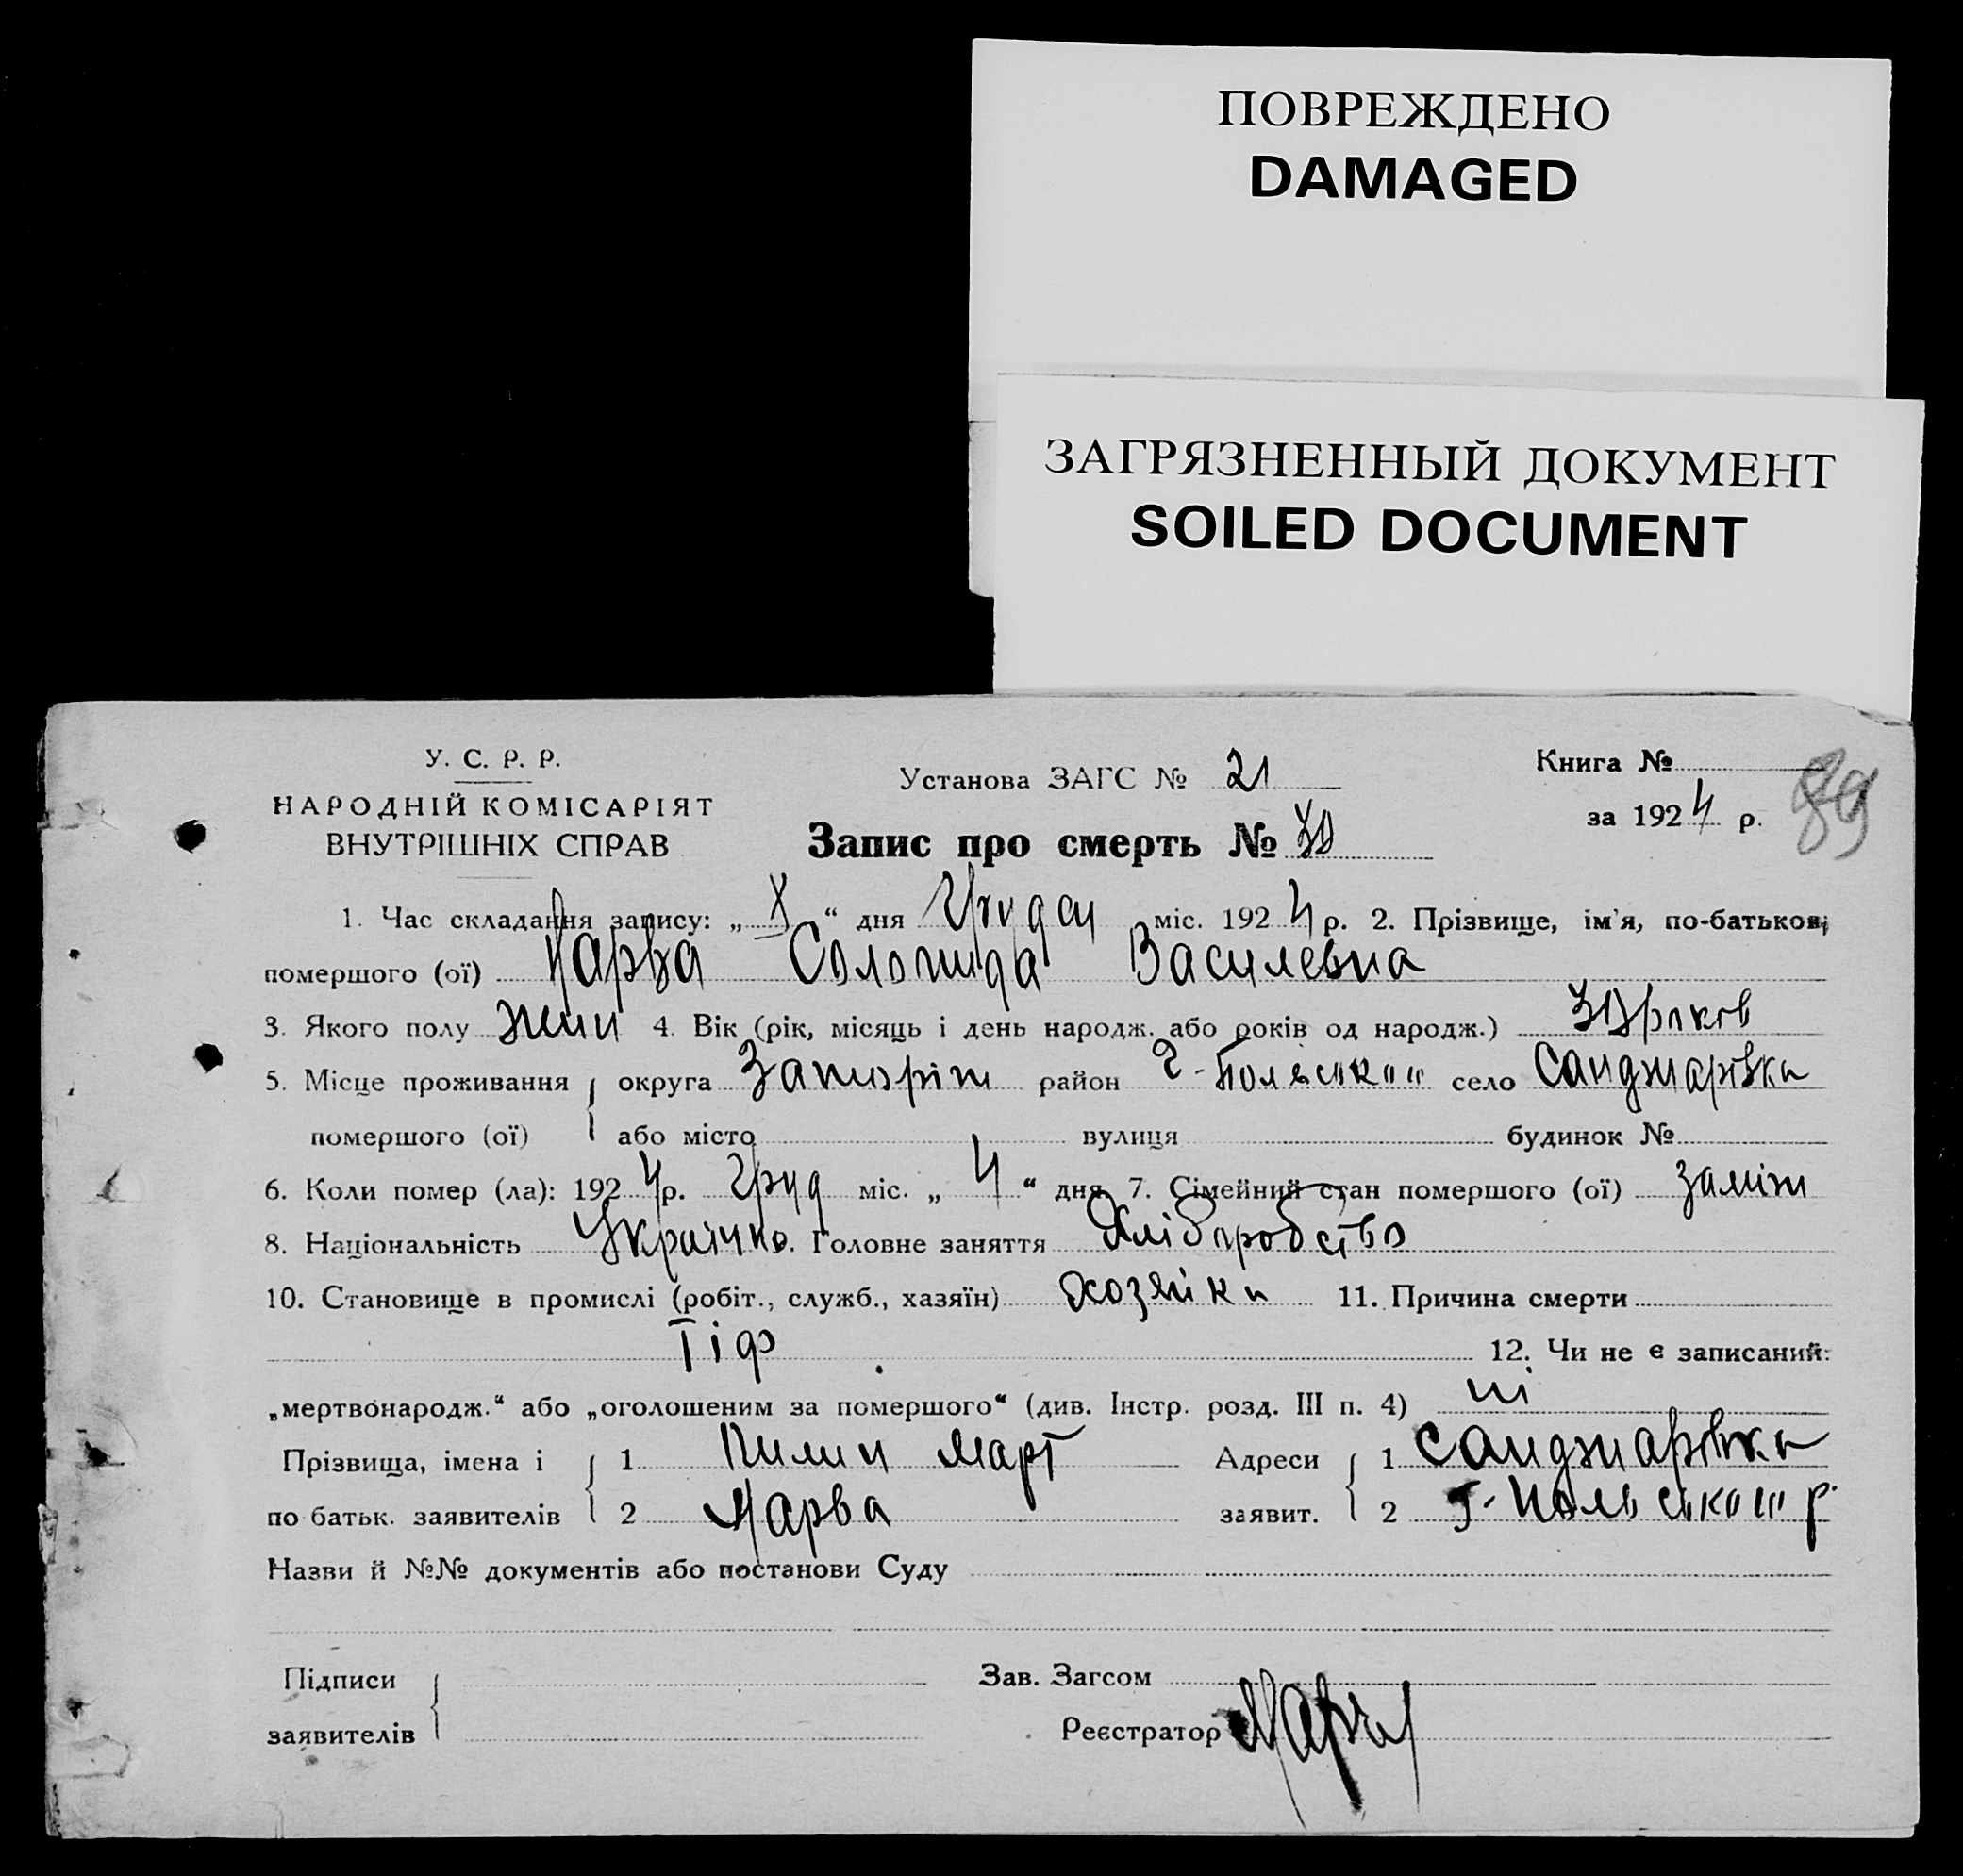 ПОВРЕЖДЕНО
DAMAGED
ЗАГРЯЗНЕННЫЙ ДОКУМЕНТ
SOILED DOCUMENT
У. С. Р. Р.
НАРОДНІЙ КОМІСАРІЯТ
ВНУТРІШНІХ СПРАВ
Установа ЗАГС № 21
Запис про смерть №
Книга №
за 1924 р.
89
1. Час складання запису: „ “ дня міс. 1924 р. 2. Прізвище, ім'я, по-батькові
помершого (ої) Марва Соломида Василевна
3. Якого полу жін 4. Вік (рік, місяць і день народж. або років од народж.) 30 років
5. Місце проживання округа Запоріж район Г-Польськ село Санджарівка
помершого (ої) або місто вулиця будинок №
6. Коли помер (ла): 1924 р. Груд міс. „ 4 “ дня 7. Сімейний стан помершого (ої) заміж
8. Національність Україн. Головне заняття Хліборобство
10. Становище в промислі (робіт., служб., хазяїн) хозяйка 11. Причина смерти
Тіф 12. Чи не є записаний:
„мертвонародж.“ або „оголошеним за помершого“ (див. Інстр. розд. III п. 4) ні
Прізвища, імена і 1 Пилип Март Адреси 1 Санджарівка
по батьк. заявителів 2 Марва заявит. 2 Г-Польського р.
Назви й №№ документів або постанови Суду
Підписи Зав. Загсом
заявителів Реєстратор